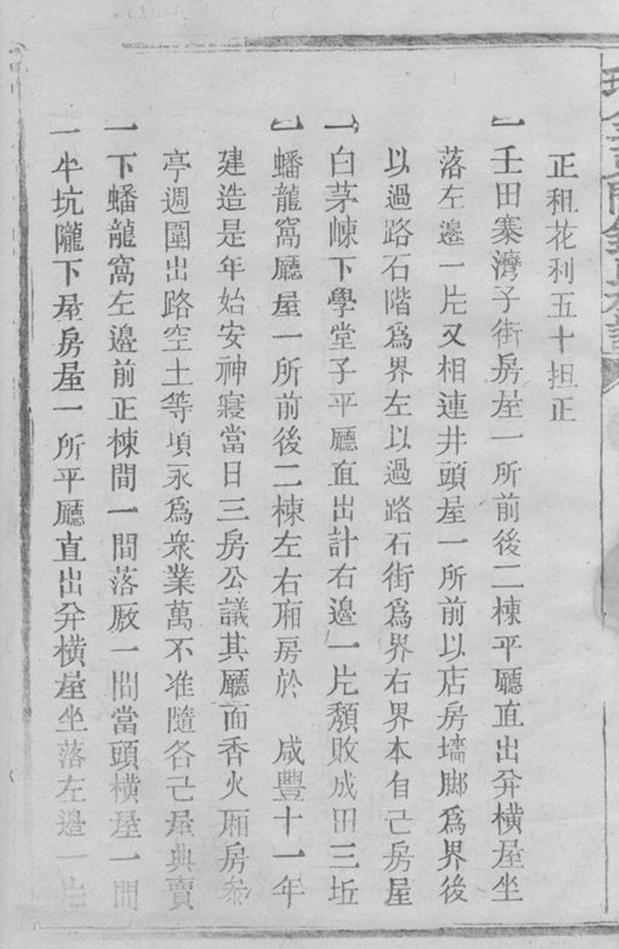 正租花利五十担正
一壬田寨灣子街房屋一所前後二棟平廳直出弁橫屋坐
落左邊一片又相連井頭屋一所前以店房墻脚爲界後
以過路石階爲界左以過路石街爲界右界本自己房屋
一白茅崠下學堂子平廳直出計右邊一片頽敗成田三坵
一蟠龍窩廳屋一所前後二棟左右厢房於 咸豐十一年
建造是年始安神寢當日三房公議其廳面香火厢房
亭週圍出路空土等項永爲衆業萬不准隨各己屋典賣
一下蟠龍窩左邊前正棟間一間落厫一間當頭橫屋一間
一牛坑隴下屋房屋一所平廳直出弁橫屋坐落左邊一片